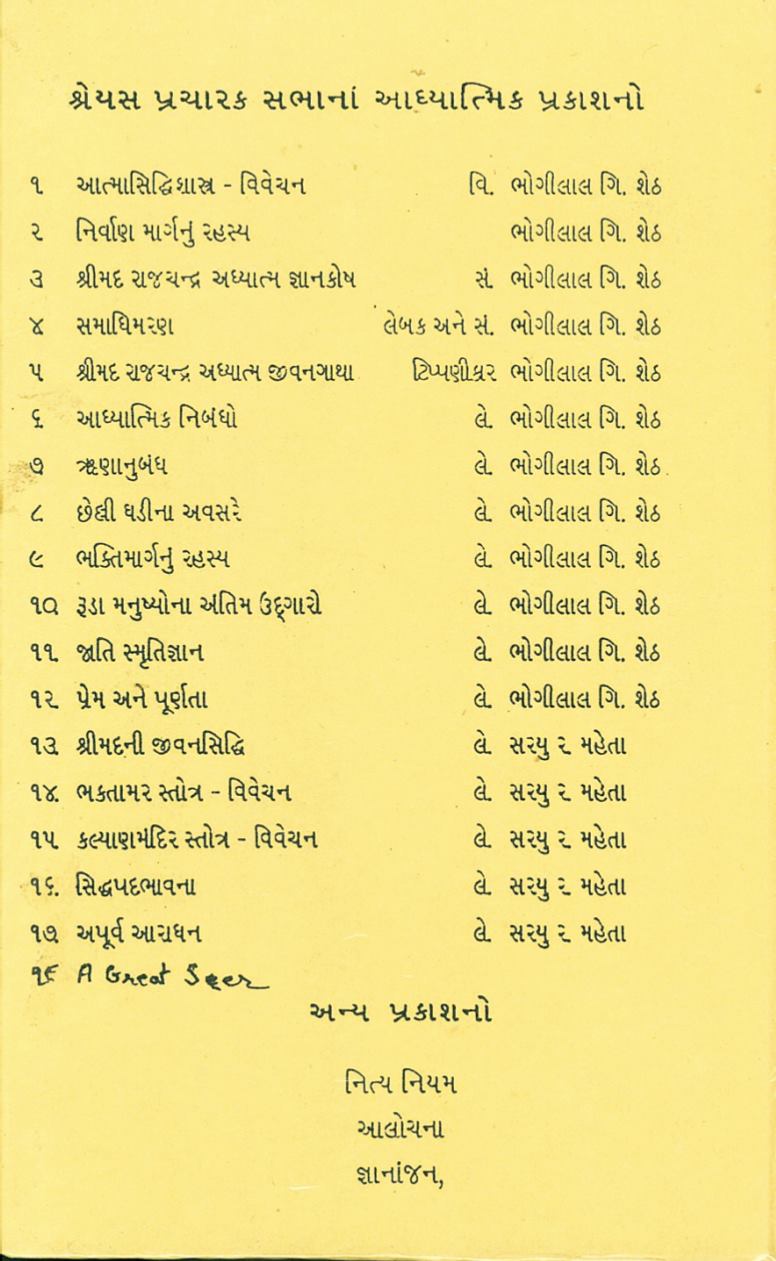 શ્રેયસ પ્રચારક સભાનાં આધ્યાત્મિક પ્રકાશનો
૧ આત્માસિદ્ધિશાસ્ત્ર - વિવેચન વિ. ભોગીલાલ ગિ. શેઠ
૨ નિર્વાણ માર્ગનું રહસ્ય ભોગીલાલ ગિ. શેઠ
૩ શ્રીમદ રાજચન્દ્ર અધ્યાત્મ જ્ઞાનકોષ સં. ભોગીલાલ ગિ. શેઠ
૪ સમાધિમરણ લેબક અને સં. ભોગીલાલ ગિ. શેઠ
૫ શ્રીમદ રાજચન્દ્ર અધ્યાત્મ જીવનગાથા ટિપ્પણીકાર ભોગીલાલ ગિ. શેઠ
૬ આધ્યાત્મિક નિબંધો લે. ભોગીલાલ ગિ. શેઠ
૭ ઋણાનુબંધ લે. ભોગીલાલ ગિ. શેઠ.
૮ છેલ્લી ઘડીના અવસરે લે. ભોગીલાલ ગિ. શેઠ
૯ ભક્તિમાર્ગનું રહસ્ય લે. ભોગીલાલ ગિ. શેઠ
૧૦ રૂડા મનુષ્યોના અંતિમ ઉદ્ગારો લે. ભોગીલાલ ગિ. શેઠ
૧૧. જાતિ સ્મૃતિજ્ઞાન લે. ભોગીલાલ ગિ. શેઠ
૧૨. પ્રેમ અને પૂર્ણતા લે. ભોગીલાલ ગિ. શેઠ
૧૩. શ્રીમદની જીવનસિદ્ધિ લે. સરયુ ર. મહેતા
૧૪. ભક્તામર સ્તોત્ર - વિવેચન લે. સરયુ ર. મહેતા
૧૫. કલ્યાણમંદિર સ્તોત્ર - વિવેચન લે. સરયુ ર. મહેતા
૧૬. સિદ્ધપદભાવના લે. સરયુ ર. મહેતા
૧૭ અપૂર્વ આરાધન લે. સરયુ ર. મહેતા
A Great Seer
અન્ય પ્રકાશનો
નિત્ય નિયમ
આલોચના
જ્ઞાનાંજન,